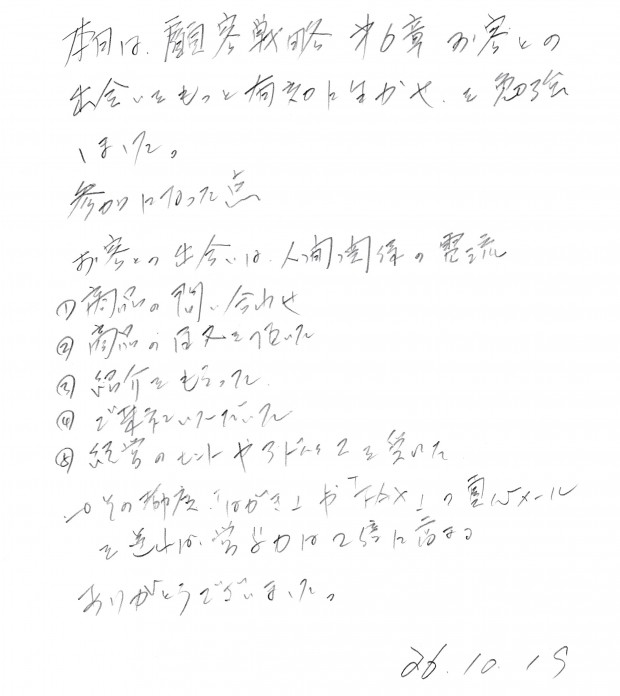 本日は、顧客戦略 第6章 お客との
出会いをもっと有効に生かせ、を勉強
しました。
参考になった点
お客との出会いは、人間関係の電流
① 商品の問い合わせ
② 商品の注文を頂いた
③ 紹介をもらった
④ ご来社いただいた
⑤ 経営のヒントやアドバイスを受けた
→その都度「はがき」や「FAX」の メール
を送れば、営業力は2倍に高まる
ありがとうございました。
26.10.15